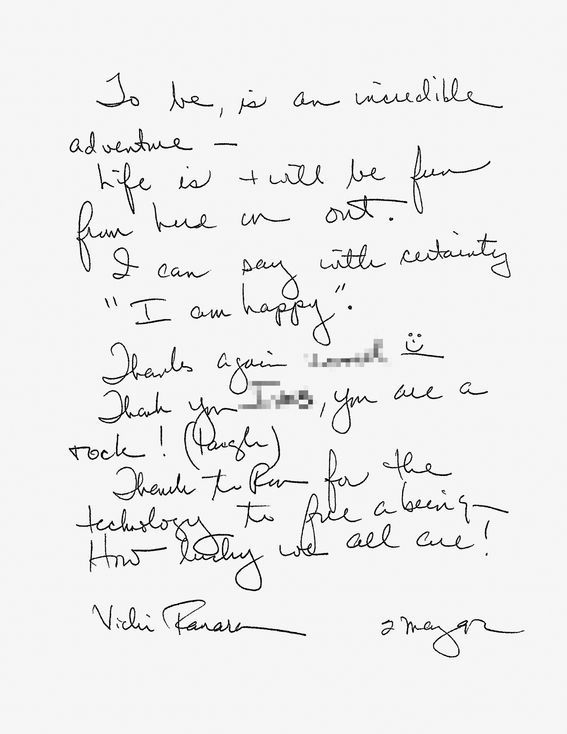 To be, is an incredible
adventure —
Life is + will be fun
from here on out.
I can say with certainty
"I am happy".
Thanks again
Thank you, you are a
rock! (Laugh)
Thanks to Ron for the
technology to free a being—
How lucky we all are!
Vicki 2 May 92